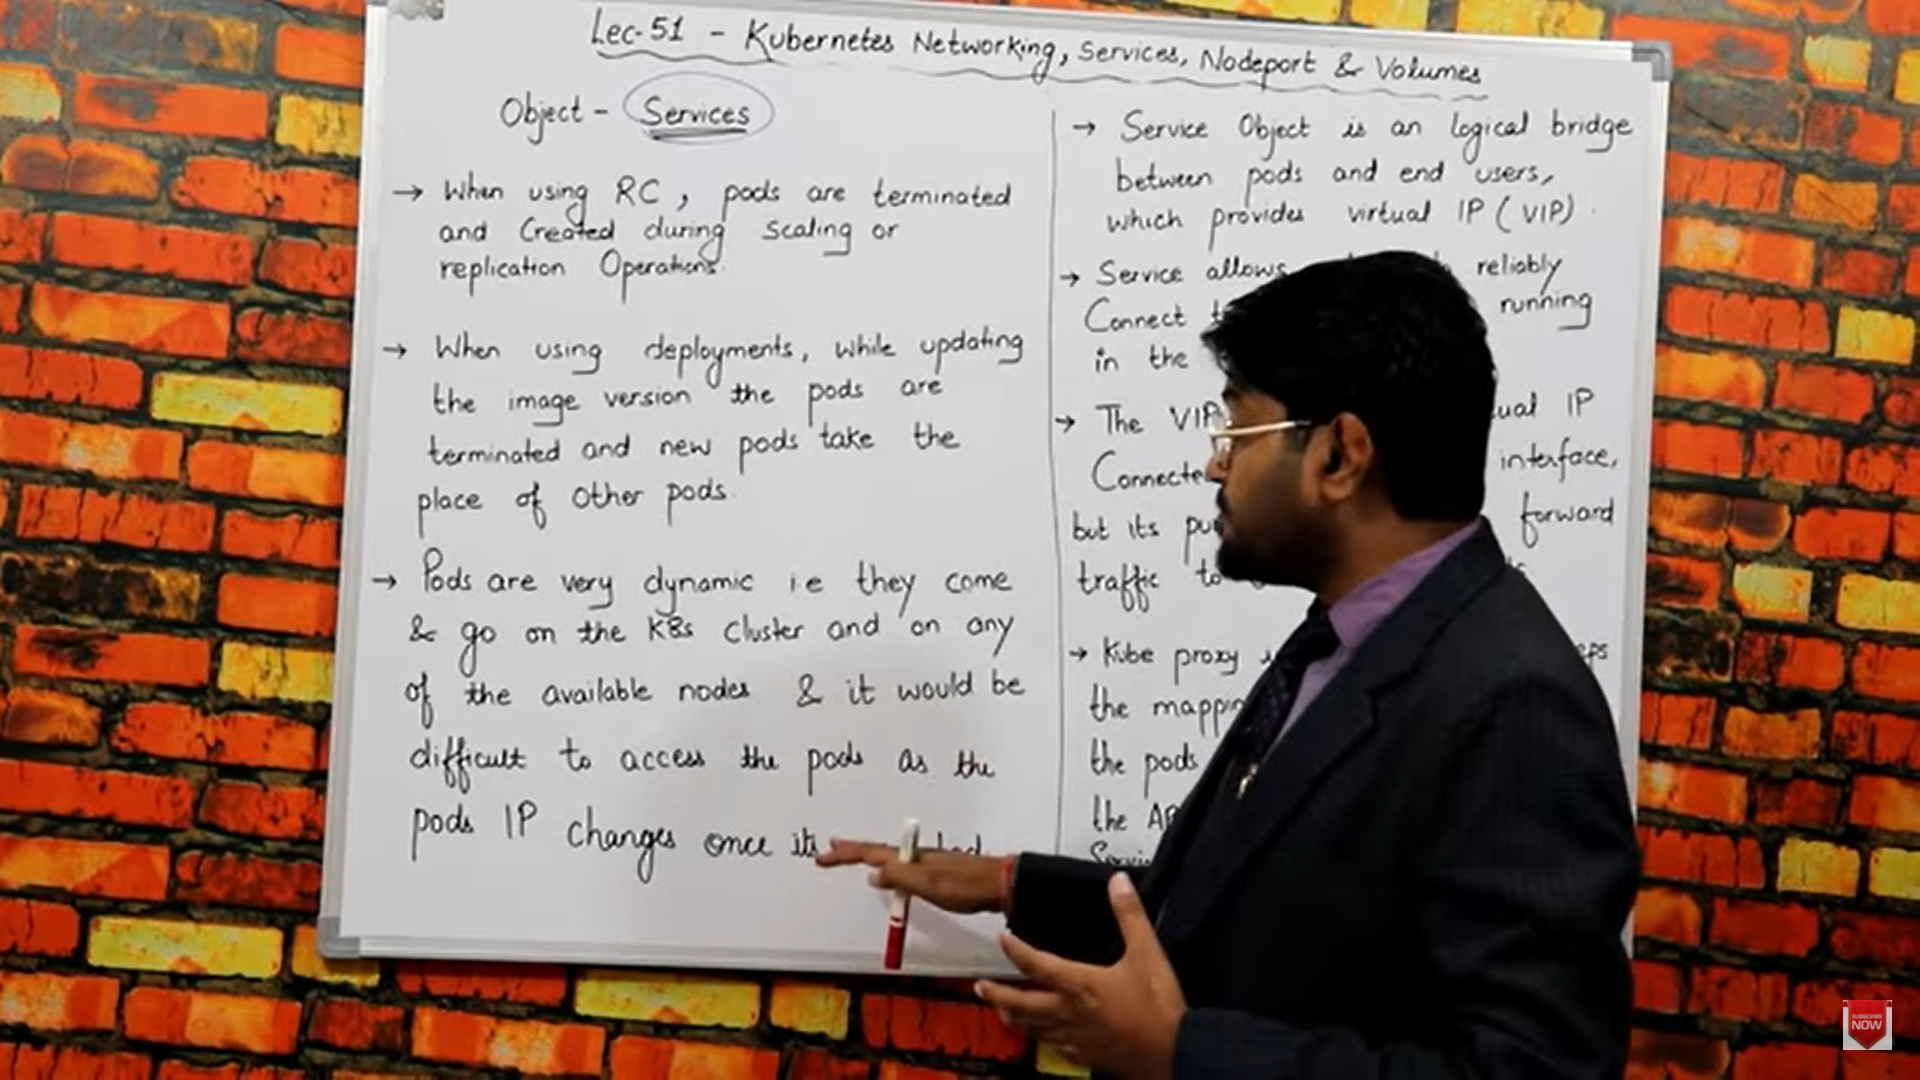 Lec-51 - Kubernetes Networking, Services, Nodeport & Volumes
Object - Services
→ When using RC, pods are terminated
and Created during Scaling or
replication Operations.
→ When using deployments, while updating
the image version the pods are
terminated and new pods take the
place of other pods.
→ Pods are very dynamic i.e they come
& go on the K8s cluster and on any
of the available nodes & it would be
difficult to access the pods as the
pods IP changes once its
→ Service Object is an logical bridge
between pods and end users,
which provides virtual IP (VIP).
→ Service allows reliably
Connect running
in the
→ The VIP IP
interface,
but its forward
traffic to
→ Kube proxy
the
the pods
the
SUBSCRIBE
NOW